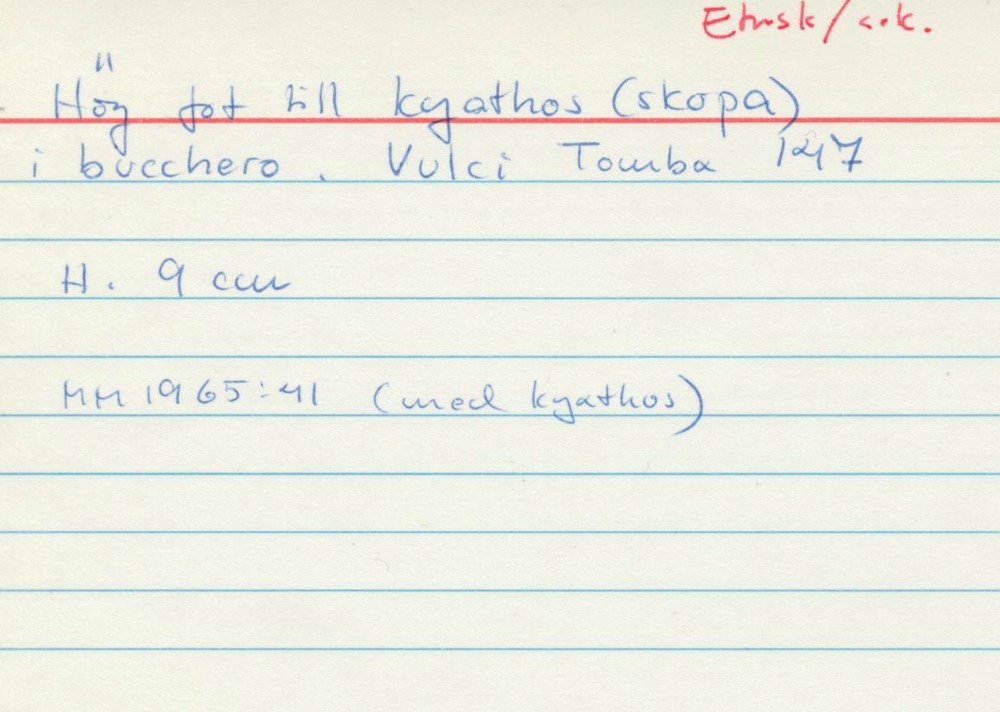 Etrusk/s.k.
Hög fot till kyathos (skopa)
i bucchero. Vulci Tomba 147
H. 9 cm
MM 1965:41 (med kyathos)